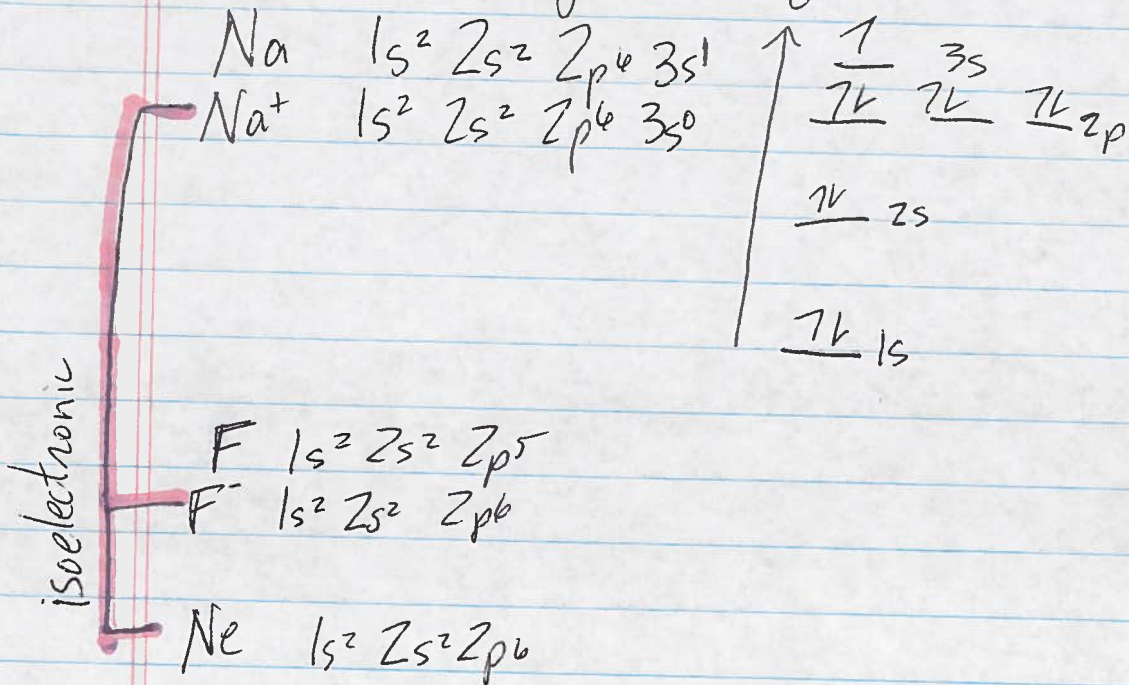 Na 1s² 2s² 2p⁶ 3s¹
Na⁺ 1s² 2s² 2p⁶ 3s⁰
1 3s
1L 1L 1L 2p
1L 2s
1L 1s
isoelectronic
F 1s² 2s² 2p⁵
F⁻ 1s² 2s² 2p⁶
Ne 1s² 2s² 2p⁶